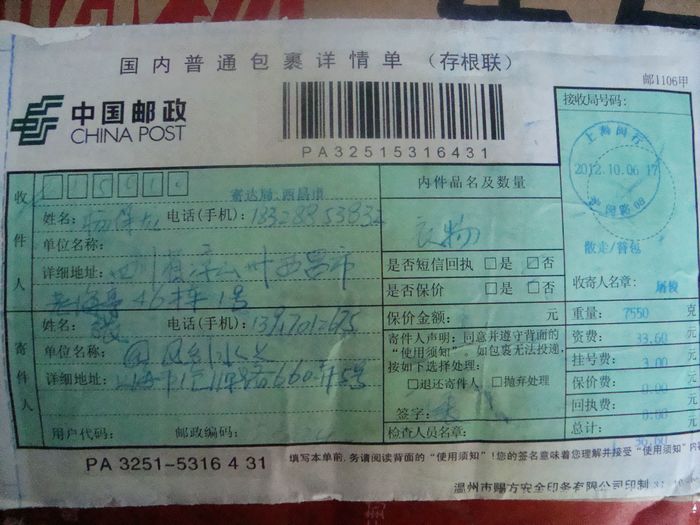 国内普通包裹详情单 （存根联）
邮1106甲
中国邮政
CHINA POST
PA32515316431
接收局号码:
上海闵行
2012.10.06 17
散走/普包
收寄人名章:
重量: 7550 克
资费: 33.60 元
挂号费: 3.00 元
保价费: 0.00 元
回执费: 0.00 元
总计: 36.60 元
收件人
寄达局:西昌市
姓名: 电话(手机):
单位名称:
详细地址: 四川省凉山州西昌市
46栋1号
内件品名及数量
衣物
是否短信回执 □是 ☑否
是否保价 □是 □否
保价金额: 元
寄件人
姓名: 张 电话(手机):
单位名称:
详细地址: 上海市 660弄5号
用户代码: 邮政编码:
寄件人声明: 同意并遵守背面的
“使用须知”。如包裹无法投递,
按如下选择处理:
□退还寄件人 □抛弃处理
签字:
检查人员名章:
PA 3251-5316 4 31
填写本单前,务请阅读背面的“使用须知”!您的签名意味着您理解并接受“使用须知”内
温州市赐方安全印务有限公司印制